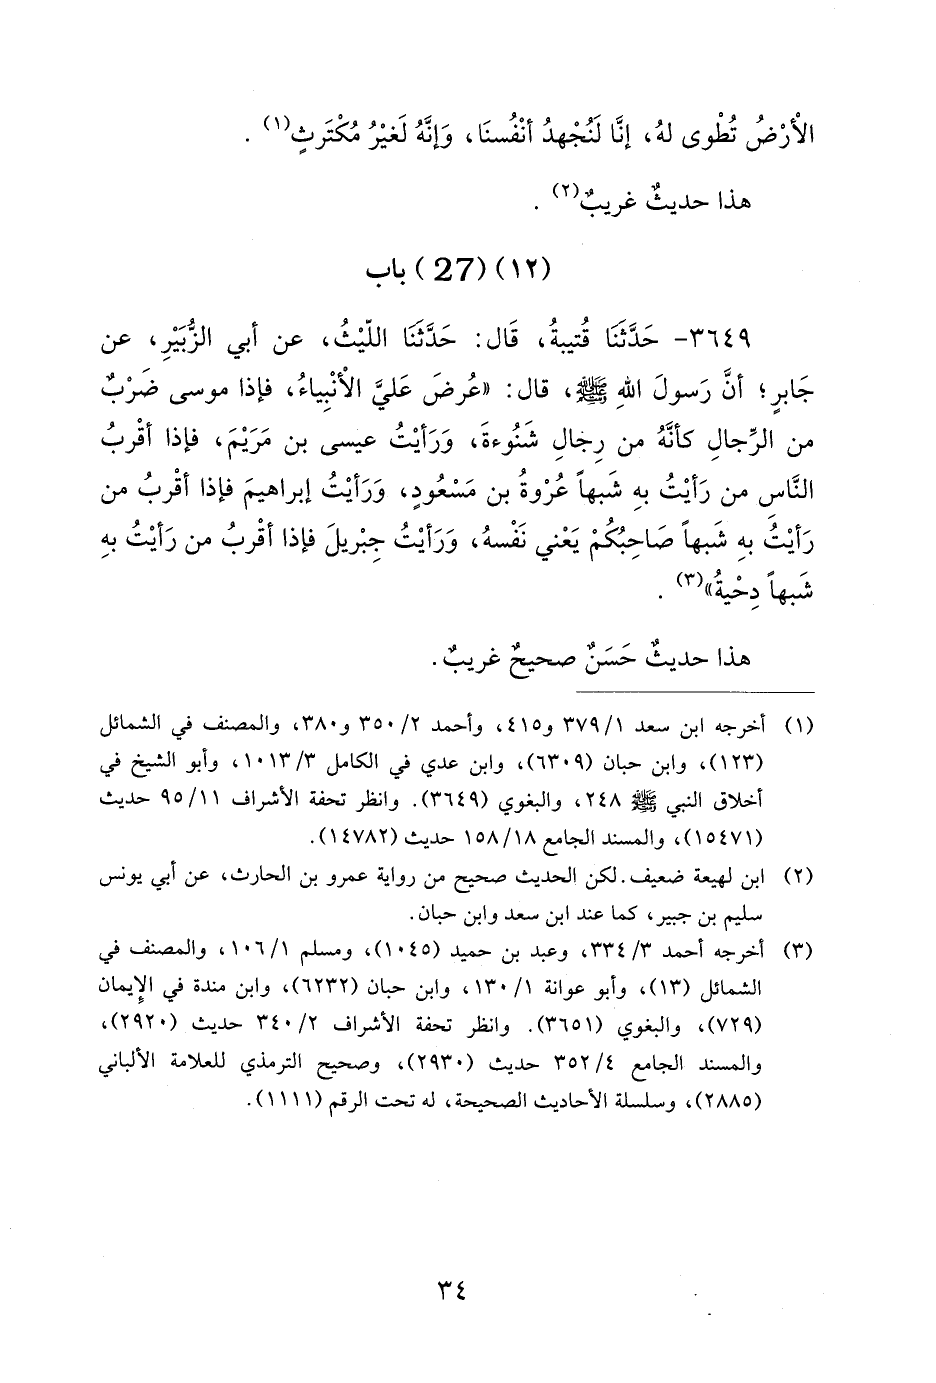 الْأَرْضُ تُطْوى لهُ، إنَّا لَنُجْهِدُ أنْفُسنَا، وَإنَّهُ لَغيْرُ مُكْتَرِثٍ(١) .
هذا حديثٌ غريبٌ(٢) .
(١٢) (27) باب
٣٦٤٩- حَدَّثَنَا قُتيبةُ، قَال: حَدَّثَنَا اللّيْثُ، عن أبي الزُّبَيْرِ، عن
جَابرٍ؛ أنَّ رَسولَ اللهِ ﷺ، قال: «عُرضَ عَليَّ الْأنْبِياءُ، فإذا موسى ضَرْبٌ
من الرِّجالِ كأنَّهُ من رِجالِ شَنُوءةَ، وَرَأيْتُ عيسى بن مَرَيْمَ، فإذا أقْربُ
النَّاسِ من رَأيْتُ بِه شَبهاً عُرْوةُ بن مَسْعُودٍ، وَرَأيْتُ إبراهيمَ فإذا أقْربُ من
رَأيْتُ بِهِ شَبهاً صَاحِبُكُمْ يَعْني نَفْسهُ، وَرَأيْتُ جِبْريلَ فإذا أقْربُ من رَأيْتُ بِهِ
شَبهاً دِحْيةُ»(٣) .
هذا حديثٌ حَسَنٌ صحيحٌ غريبٌ.
(١) أخرجه ابن سعد ٣٧٩/١ و٤١٥، وأحمد ٣٥٠/٢ و٣٨٠، والمصنف في الشمائل
(١٢٣)، وابن حبان (٦٣٠٩)، وابن عدي في الكامل ١٠١٣/٣، وأبو الشيخ في
أخلاق النبي ﷺ ٢٤٨، والبغوي (٣٦٤٩). وانظر تحفة الأشراف ٩٥/١١ حديث
(١٥٤٧١)، والمسند الجامع ١٥٨/١٨ حديث (١٤٧٨٢).
(٢) ابن لهيعة ضعيف. لكن الحديث صحيح من رواية عمرو بن الحارث، عن أبي يونس
سليم بن جبير، كما عند ابن سعد وابن حبان.
(٣) أخرجه أحمد ٣٣٤/٣، وعبد بن حميد (١٠٤٥)، ومسلم ١٠٦/١، والمصنف في
الشمائل (١٣)، وأبو عوانة ١٣٠/١، وابن حبان (٦٢٣٢)، وابن مندة في الإيمان
(٧٢٩)، والبغوي (٣٦٥١). وانظر تحفة الأشراف ٣٤٠/٢ حديث (٢٩٢٠)،
والمسند الجامع ٣٥٢/٤ حديث (٢٩٣٠)، وصحيح الترمذي للعلامة الألباني
(٢٨٨٥)، وسلسلة الأحاديث الصحيحة، له تحت الرقم (١١١١).
٣٤